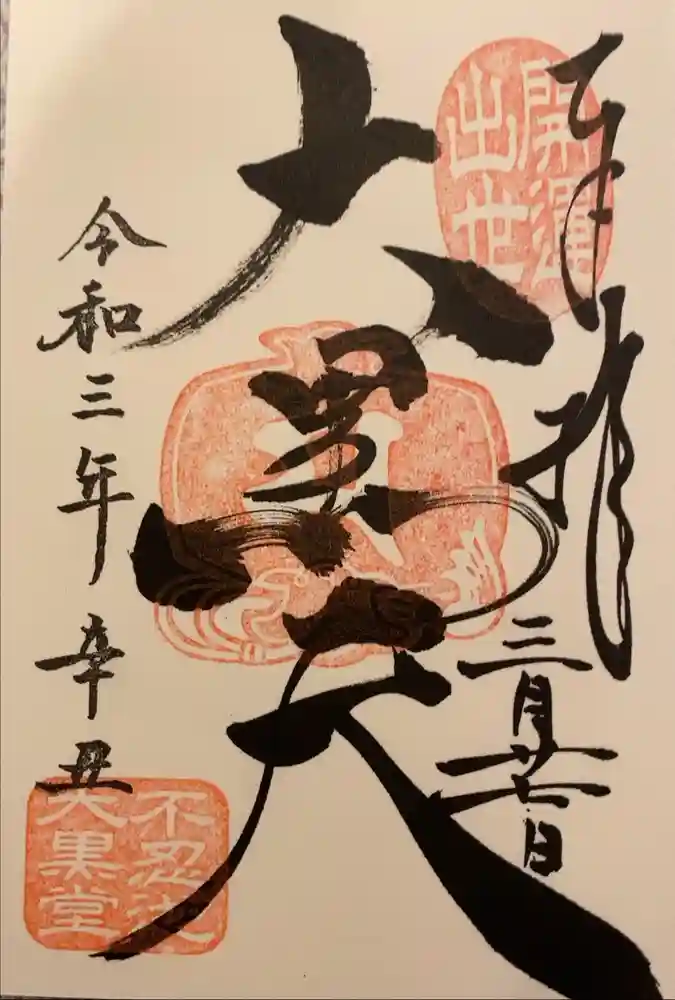 奉拝
三月廿七日
開運
出世
大黒天
令和三年 辛丑
不忍池
大黒堂